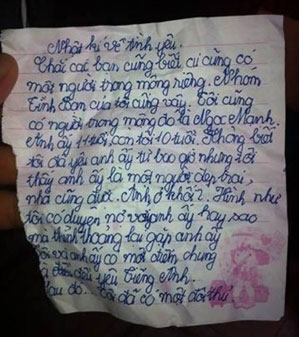 Nhật kí về tình yêu.
Chắc các bạn cũng biết cứ cũng có
một người trong mộng riêng. Nhóm
Tình Bạn của tôi cũng vậy. Tôi cũng
có người trong mộng đó là Ngọc Mạnh.
Anh ấy 11 tuổi, còn tôi 10 tuổi. Không biết
tôi đã yêu anh ấy từ bao giờ nhưng tôi
thấy anh ấy là một người đẹp trai,
nhà cũng được. Anh ở khối 2. Hình như
tôi có duyên nợ với anh ấy hay sao
mà thỉnh thoảng lại gặp anh ấy
Tôi và anh ấy có một điểm chung
là đều yêu Tiếng Anh.
Sau đó... Tôi đã có một đối thủ